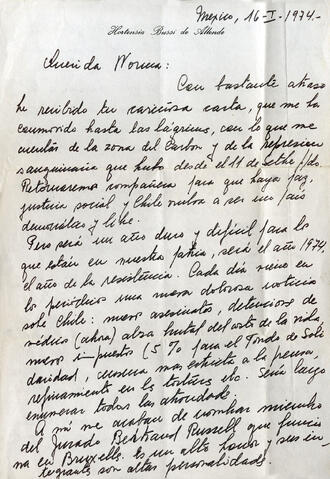 Mexico, 16-I-1974.-
Hortensia Bussi de Allende
Querida Norma:
Con bastante atraso
he recibido tu cariñosa carta, que me ha
conmovido hasta las lágrimas, con lo que me
cuentas de la zona del Carbón y de la represión
sanguinaria que hubo desde el 11 de setbre pdo.
Retornaremos compañera para que haya paz,
justicia social y Chile vuelva a ser un país
democrático y libre.
Pero será un año duro y difícil para los
que están en nuestra patria, será el año 1974,
el año de la resistencia. Cada día viene en
los periódicos una nueva dolorosa noticia
sobre Chile: nuevos asesinatos, detenciones de
médicos (ahora) alza brutal del costo de la vida
nuevos impuestos (5% para el Fondo de Soli
daridad, censura mas estricta a la prensa,
refinamiento en las torturas etc. Sería largo
enumerar todas las atrocidades.
A mí me acaban de nombrar miembro
del Jurado Bertrand Russell que funcio
na en Bruxells. Es un alto honor y sus in-
tegrantes son altas personalidades.